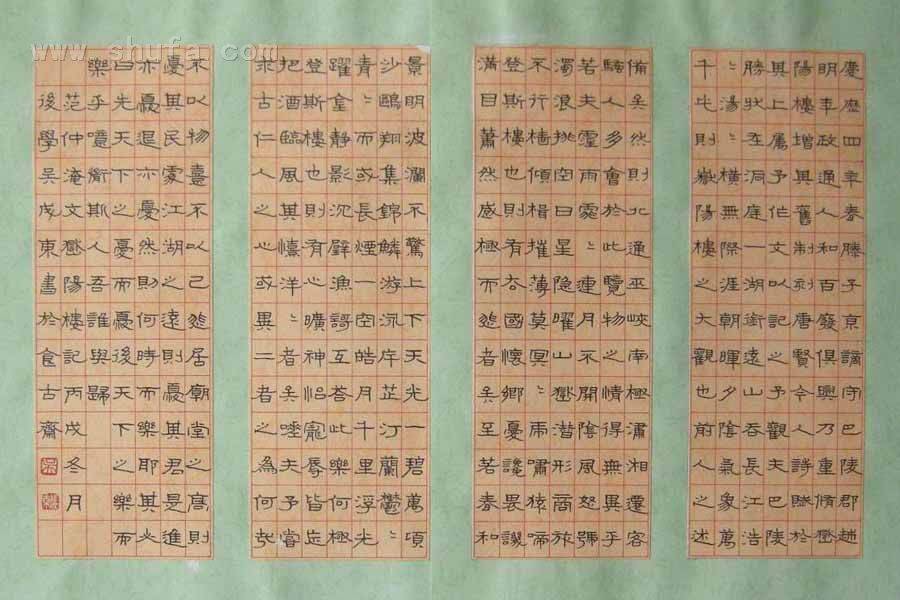 慶歷四年春滕子京謫守巴陵郡越
明年政通人和百廢俱興乃重脩嶽
陽樓增其舊制刻唐賢今人詩賦於
其上屬予作文以記之予觀夫巴陵
勝狀在洞庭一湖銜遠山吞長江浩
〻湯〻橫無際涯朝暉夕陰氣象萬
千此則嶽陽樓之大觀也前人之述
備矣然則北通巫峽南極瀟湘遷客
騷人多會於此覽物之情得無異乎
若夫霪雨霏〻連月不開陰風怒號
濁浪排空日星隱曜山嶽潛形商旅
不行檣傾楫摧薄莫冥〻虎嘯猿啼
登斯樓也則有去國懷鄉憂讒畏譏
滿目蕭然感極而悲者矣至若春和
景明波瀾不驚上下天光一碧萬頃
沙鷗翔集錦鱗游泳岸芷汀蘭鬱〻
青〻而或長煙一空皓月千里浮光
躍金靜影沉璧漁謌互答此樂何極
登斯樓也則有心曠神怡寵辱皆忘
把酒臨風其懷洋〻者矣嗟夫予嘗
求古仁人之心或異二者之為何哉
不以物喜不以己悲居廟堂之高則
憂其民處江湖之遠則憂其君是進
亦憂退亦憂然則何時而樂耶其必
曰先天下之憂而憂後天下之樂而
樂乎噫微斯人吾誰與歸
范仲淹文嶽陽樓記丙戌冬月
後學吳成東書於食古齋
www.shufa.com